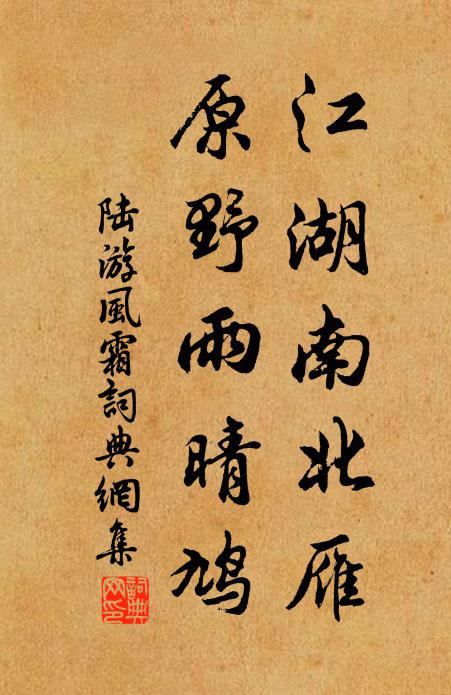 江湖南北雁
原野雨晴鸠
陆游風霜詞典網集
詞典网印